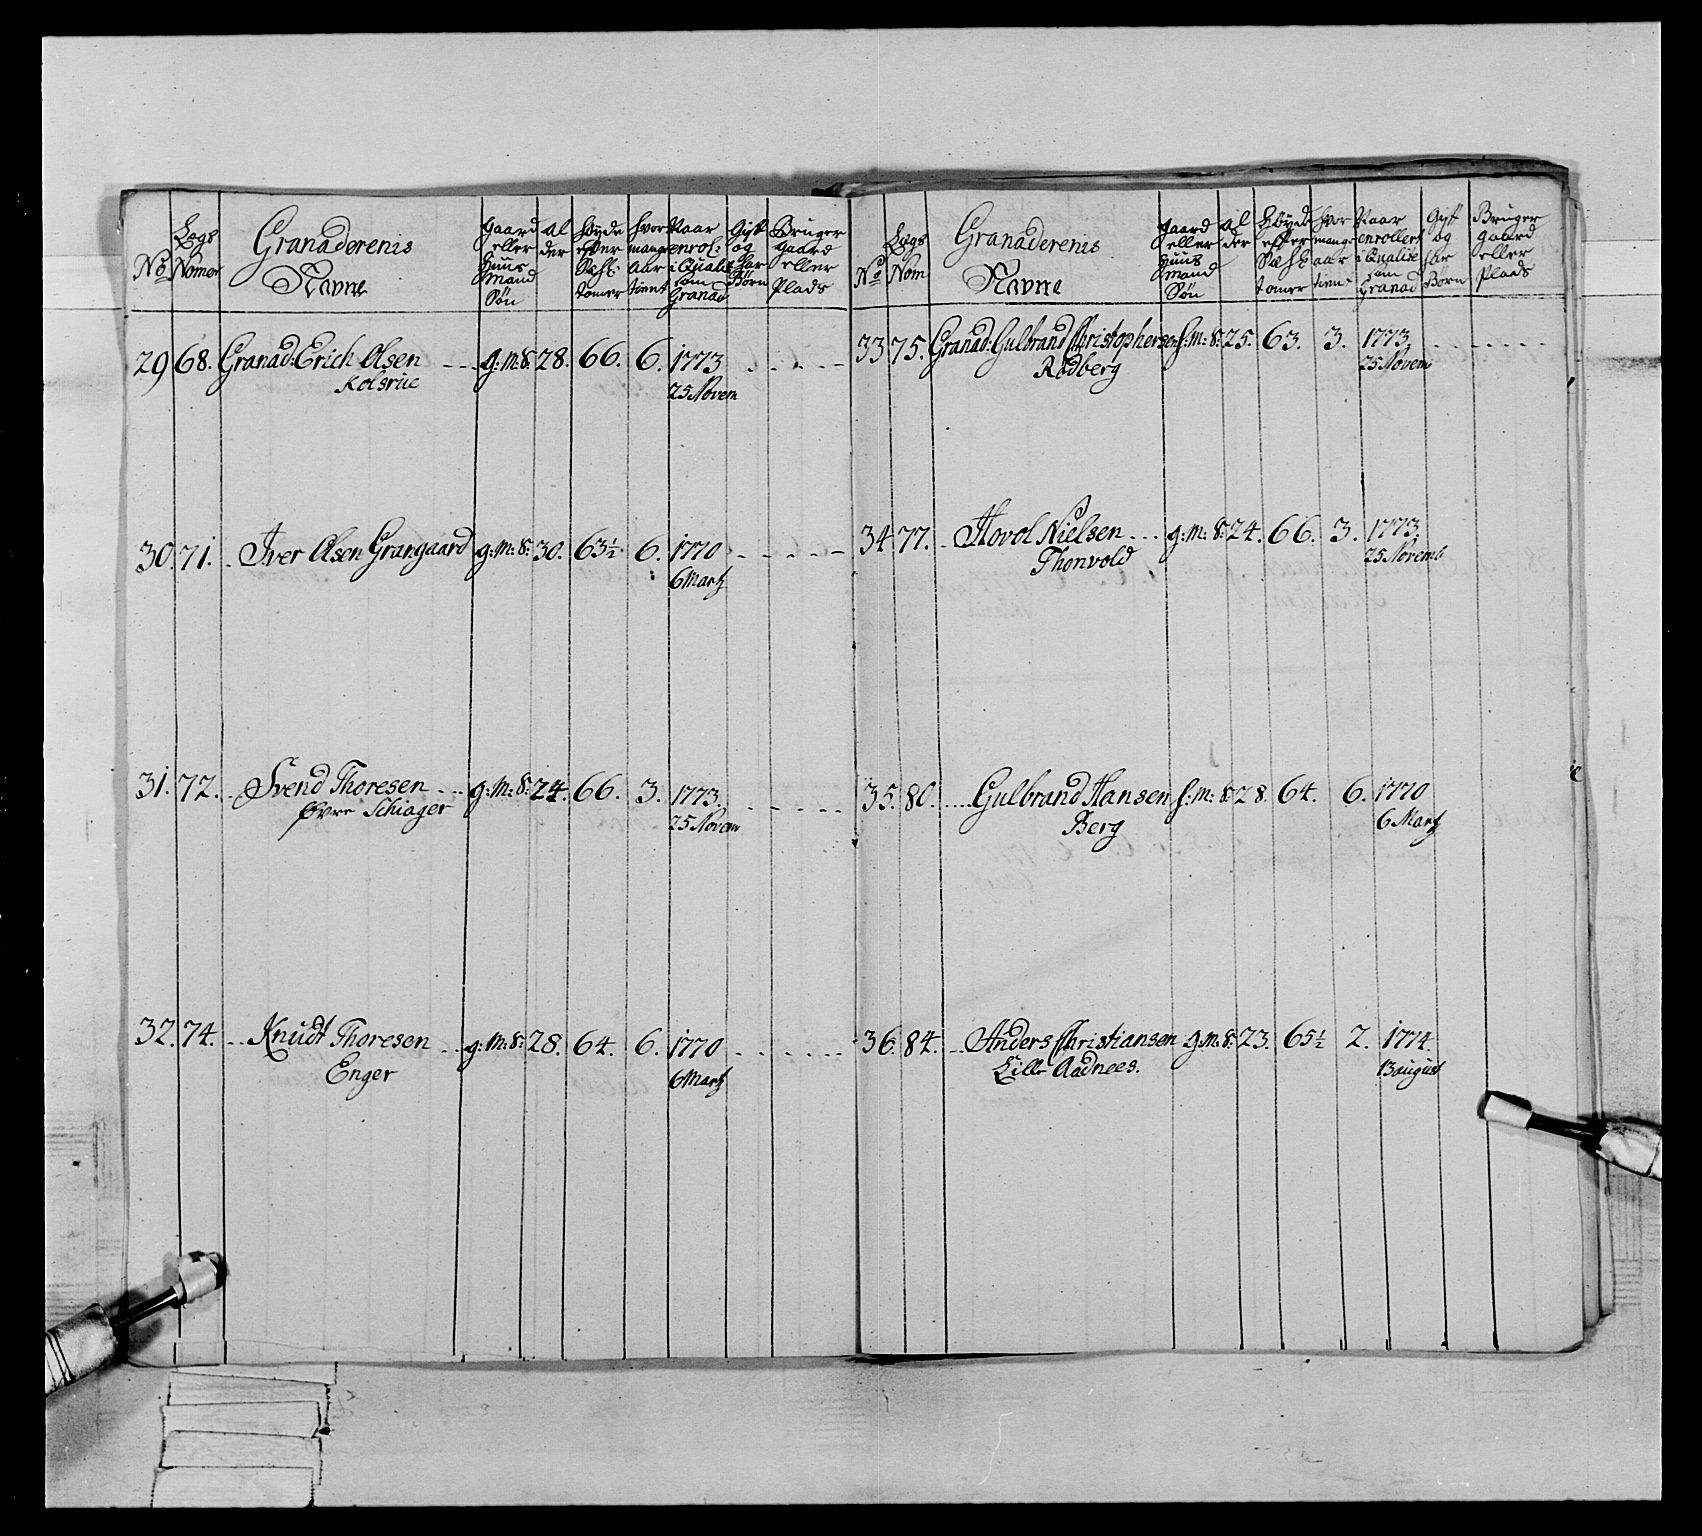 No
Lægs Nomer
Granaderenis Navne
Gaard eller Huus Mand Søn
Al der
Høyde efter Sæhs tomer
Hvor mange Aar tient
Naar enrol: i Qualit som Granad
Gift og har Børn
Bruger gaard eller Plads
29 68. Granad: Erich Olsen g: m: S: 28. 66. 6. 1773
Kolsrue 25 Novem
30. 71. Iver Olsen Grangaard g: m: S: 30. 63½ 6. 1770
6 Martz
31. 72. Svend Thoresen g: m: S: 24. 66. 3. 1773.
Øvre Schiager 25 Novem
32. 74. Knudt Thoresen g: m: S: 28. 64. 6. 1770
Enger 6 Martz
No
Lægs Nom
Granaderenis Navne
Gaard eller Huus Mand Søn
Al der
Høyde efter Sæhs tomer
Hvor mange aar tien
Naar enrollert i Qualite som Granad
Gift og har Børn
Bruger gaard eller Plads
33 75. Granad: Gulbrand Christophersen h: m: S: 25. 63. 3. 1773.
Rødberg 25 Novem
34 77. Hovol Nielsen g: m: S: 24. 66. 3. 1773.
Thonvold 25 Novemb
35. 80. Gulbrand Hansen h: m: S: 28. 64. 6. 1770
Berg 6 Martz
36. 84. Anders Christiansen g: m: S: 23. 65½ 2. 1774.
Lille Aadnees. 13 august